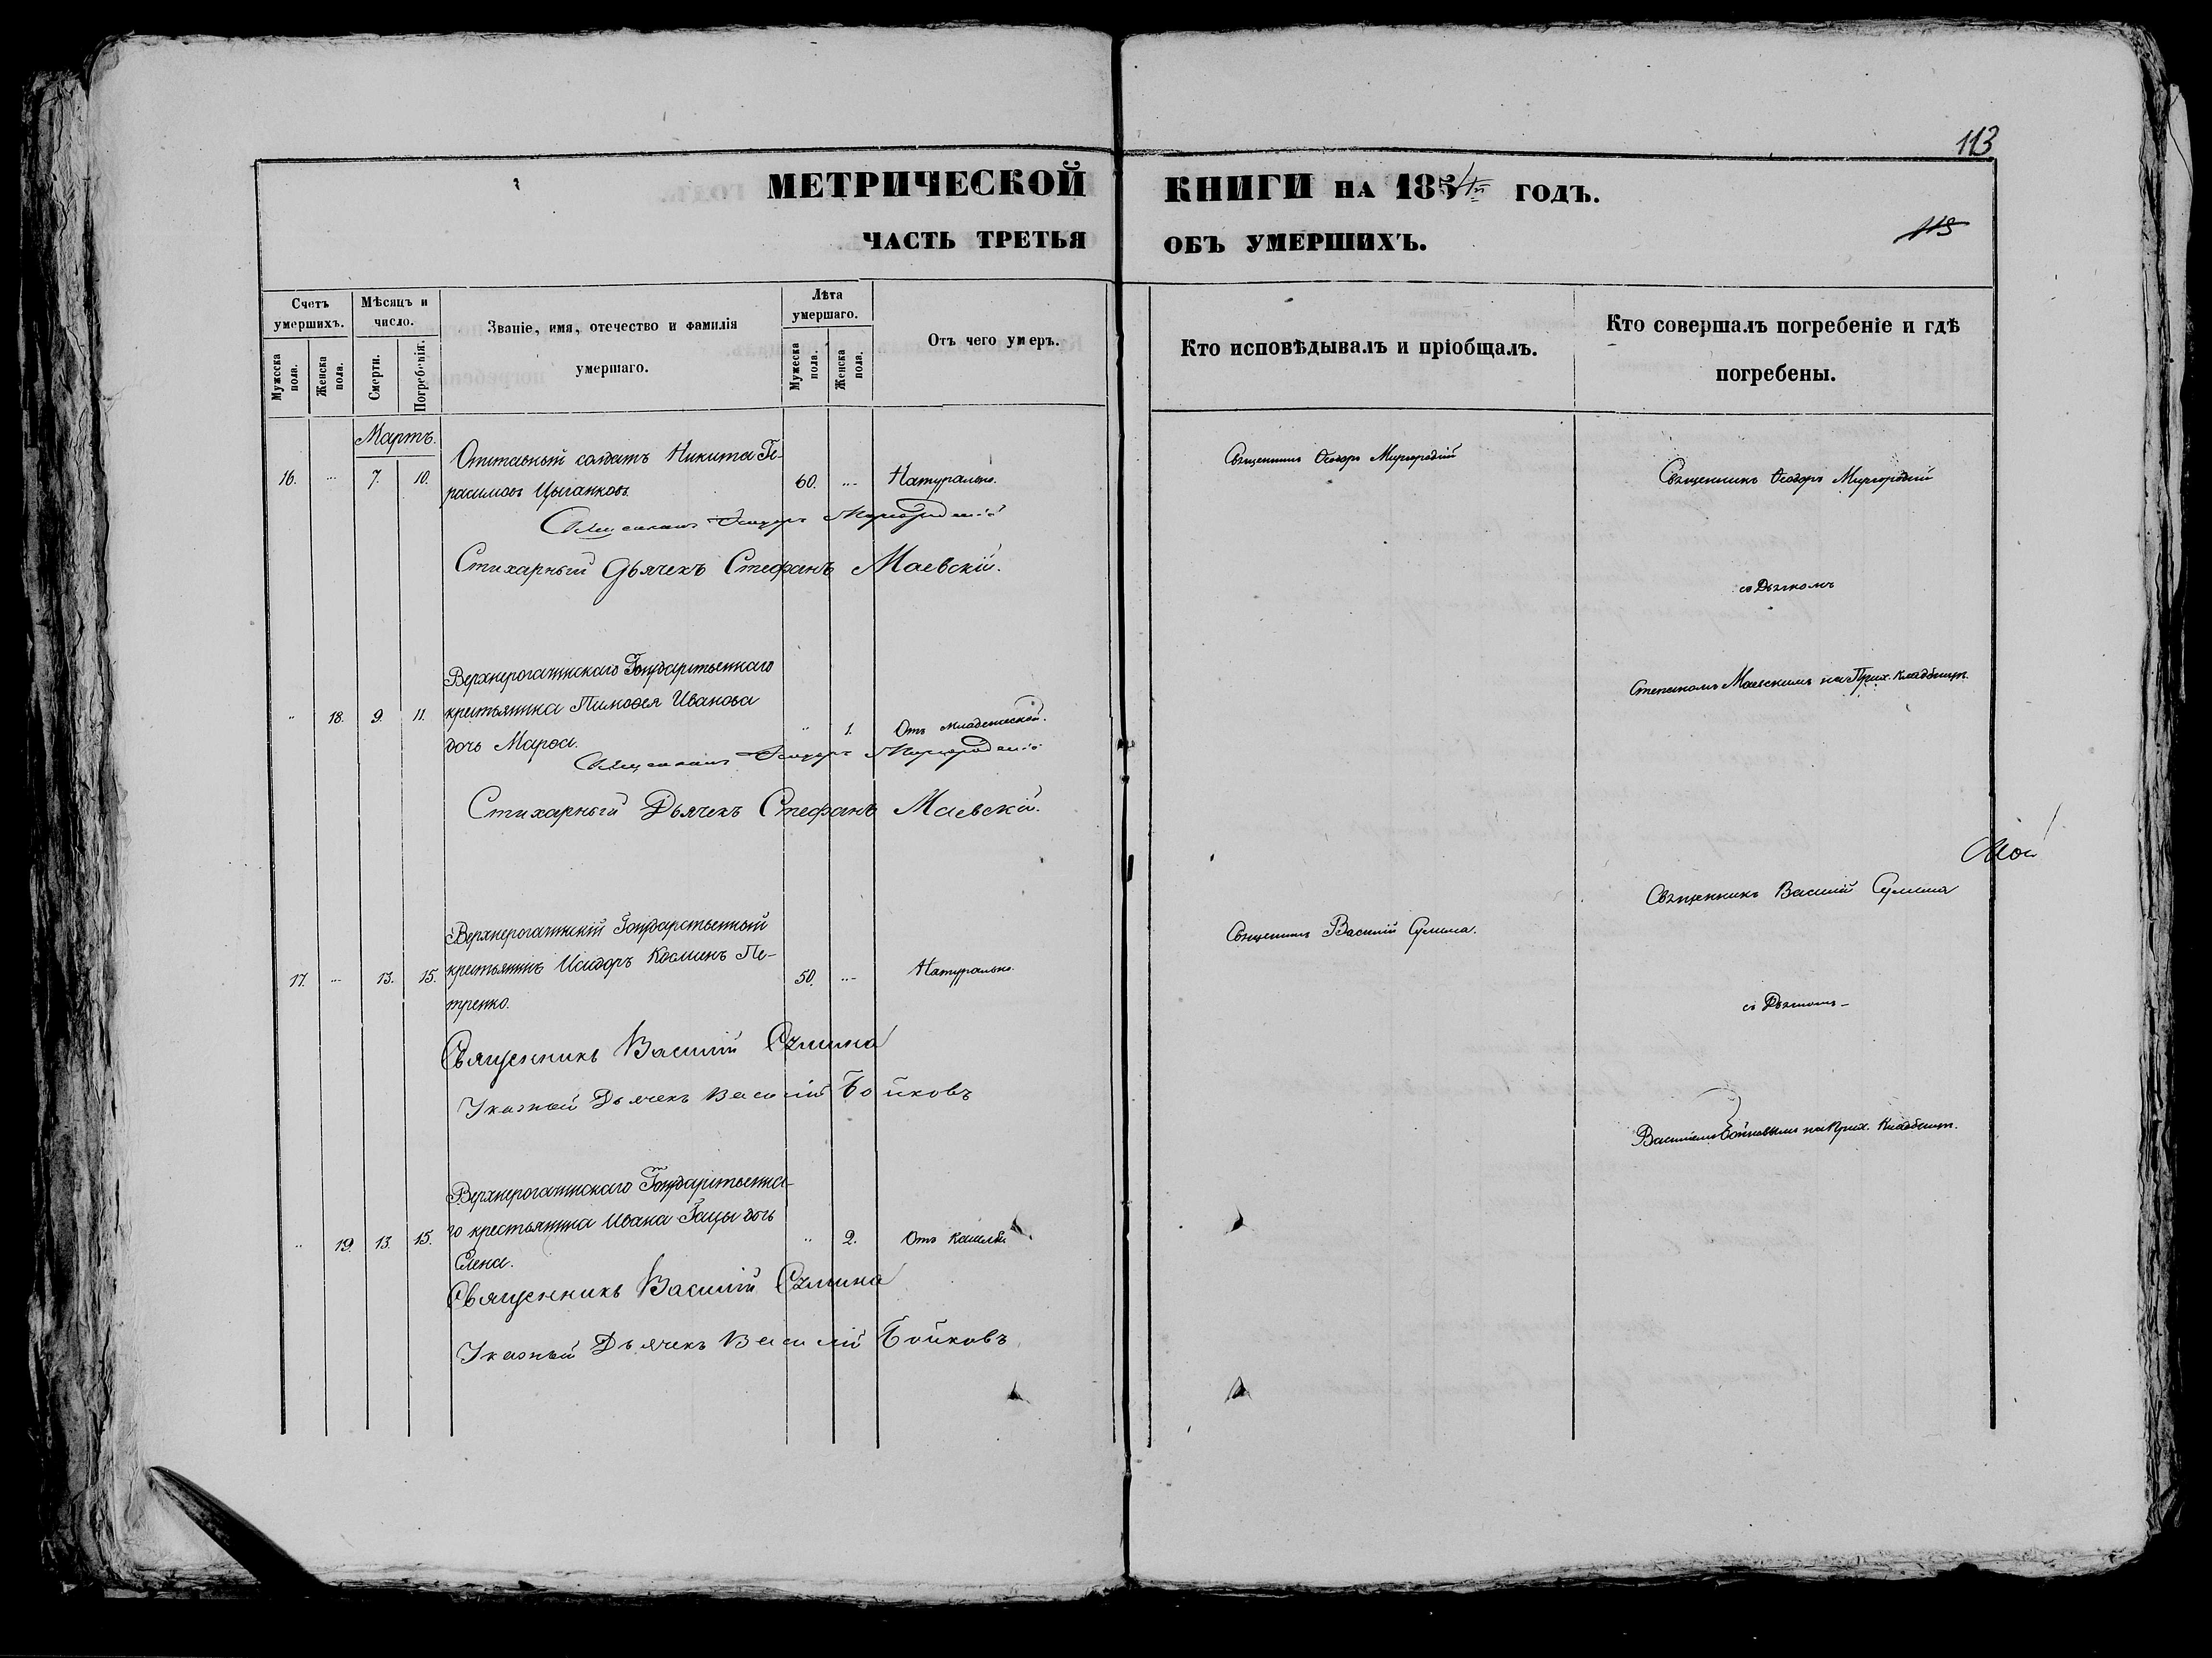 113
МЕТРИЧЕСКОЙ КНИГИ НА 185 ГОДЪ.
ЧАСТЬ ТРЕТЬЯ ОБЪ УМЕРШИХЪ.
115
Счетъ умершихъ.
Мужеска пола.
Женска пола.
Мѣсяцъ и число.
Смерти.
Погребенія.
Званіе, имя, отечество и фамилія
умершаго.
Лѣта умершаго.
Мужеска пола.
Женска пола.
Отъ чего умеръ.
Кто исповѣдывалъ и пріобщалъ.
Кто совершалъ погребеніе и гдѣ
погребены.
Мартъ.
Отставный солдатъ Никита Ге-
16. 7. 10. расимовъ Цыганковъ. 60. Натурально.
Священникъ Ѳеодоръ Миргородскій
Стихарный Дьячекъ Стефанъ Маевскій.
Священникъ Ѳеодоръ Миргородскій
Священникъ Ѳеодоръ Миргородскій
съ Дьячкомъ
Стефаномъ Маевскимъ на Прих. Кладбищѣ.
Верхнерогачикскаго Государственнаго
крестьянина Тимоѳея Иванова
18. 9. 11. дочь Марѳа. 1. Отъ младенческой.
Священникъ Ѳеодоръ Миргородскій
Стихарный Дьячекъ Стефанъ Маевскій.
Верхнерогачикскій Государственный
крестьянинъ Исидоръ Косминъ Пе-
17. 13. 15. тренко. 50. Натурально.
Священникъ Василій Сулима
Указный Дьячекъ Василій Бойковъ
Священникъ Василій Сулима.
Священникъ Василій Сулима
съ Дьячкомъ
Василіемъ Бойковымъ на Прих. Кладбищѣ.
Верхнерогачикскаго Государственна-
го крестьянина Ивана Гацы дочь
19. 13. 15. Елена. 2. Отъ кашля.
Священникъ Василій Сулима
Указный Дьячекъ Василій Бойковъ